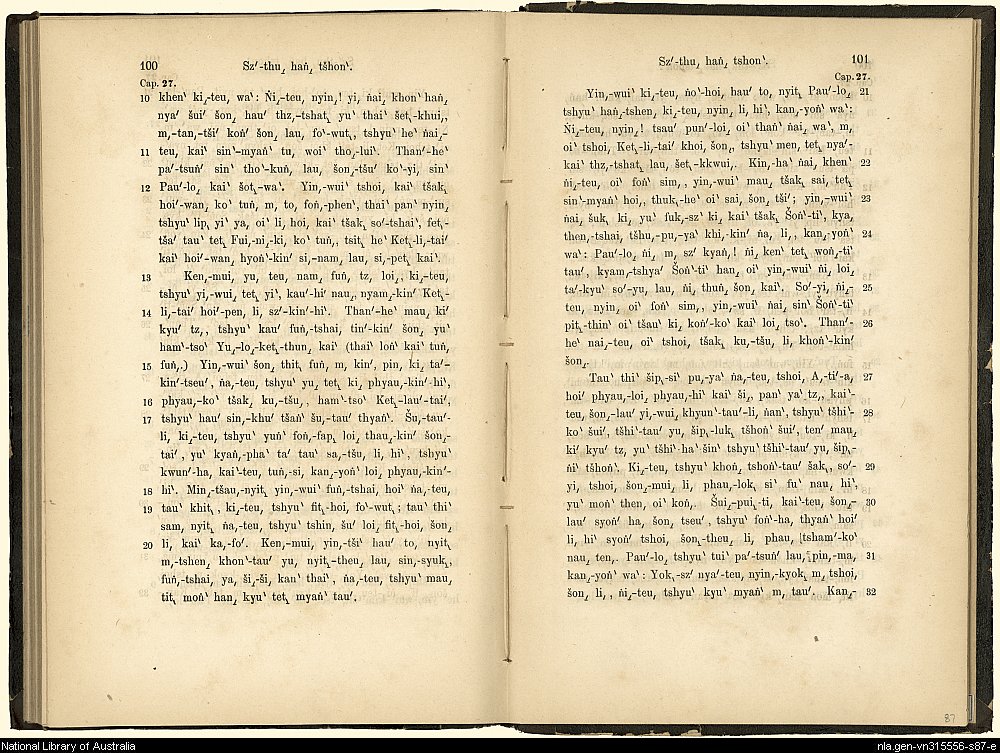 100 Sz′-thu¸ haṅ¸ tšhon‵.
Cap. 27.
10 khen‵ ki¸-teu, wa‵: Ṅi¸-teu, nyin¸! yi, ṅai¸ khon‵ haṅ¸
nya′ šui′ šon¸ hau′ thz¸-tshat¸ yu‵ thai‵ šet¸-khui¸,
m¸-tan¸-tši′ koṅ′ šon¸ lau, fo‵-wut¸, tshyu‵ he‵ ṅai¸-
11 teu, kai‵ sin‵-myaṅ‵ tu, woi‵ tho¸-lui‵. Than′-he‵
pa′-tsuṅ′ sin‵ tho‵-kuṅ, lau, šon¸-tšu′ ko‵-yi, sin‵
12 Pau′-lo¸ kai‵ šot¸-wa‵. Yin¸-wui‵ tshoi, kai‵ tšak¸
hoi′-wan¸ ko‵ tuṅ, m, to, foṅ¸-phen‵, thai‵ pan‵ nyin¸
tshyu‵ lip¸ yi‵ ya, oi‵ li, hoi, kai‵ tšak, so′-tshai‵, fet¸-
tša′ tau‵ tet¸ Fui¸-ni¸-ki, ko‵ tuṅ¸, tsit¸ he‵ Ket¸-li¸-tai′
kai‵ hoi′-wan¸ hyoṅ‵-kin′ si¸-nam¸ lau, si¸-pet¸ kai‵.
13 Ken¸-mui, yu, teu, nam¸ fuṅ, tz, loi¸, ki¸-teu,
tshyu‵ yi¸-wui¸ tet¸ yi‵, kau′-hi′ nau¸ nyam¸-kin′ Ket¸-
14 li¸-tai′ hoi′-pen, li, sz′-kin′-hi‵. Than′-he‵ mau¸ ki′
kyu′ tz¸, tshyu‵ kau′ fuṅ¸-tshai, tin′-kin′ šon¸ yu‵
ham‵-tso‵ Yu¸-lo¸-ket¸-thun¸ kai‵ (thai‵ loṅ‵ kai‵ tuṅ,
15 fuṅ¸.) Yin¸-wui‵ šon¸ thit¸ fuṅ, m, kin′, pin¸ ki¸ ta′-
kin′-tseu′, ṅa¸-teu, tshyu‵ yu¸ tet¸ ki¸ phyau¸-kin′-hi‵,
16 phyau¸-ko‵ tšak¸ ku¸-tšu¸, ham‵-tso‵ Ket¸-lau′-tai′,
17 tshyu‵ hau′ sin¸-khu′ tšaṅ‵ šu¸-tau′ thyaṅ‵. Šu¸-tau′-
li, ki¸-teu, tshyu‵ yuṅ‵ foṅ¸-fap¸ loi¸ thau¸-kin′ šon¸-
tai′, yu‵ kyaṅ¸-pha‵ ta′ tau‵ sa¸-tšu, li, hi‵, tshyu‵
kwun′-ha, kai‵-teu, tuṅ¸-si, kan¸-yoṅ‵ loi¸ phyau¸-kin′-
18 hi‵. Min¸-tšau¸-nyit¸ yin¸-wui‵ fuṅ¸-tshai, hoi‵ ṅa¸-teu,
19 tau‵ khit¸, ki¸-teu, tshyu‵ fit¸-hoi, fo‵-wut¸; tau‵ thi‵
sam, nyit¸ ṅa¸-teu, tshyu‵ tshin, šu′ loi¸ fit¸-hoi, šon¸
20 li, kai‵ ka¸-fo′. Ken¸-mui, yin¸-tši‵ hau′ to, nyit¸
m¸-tshen¸ khon‵-tau′ yu, nyit¸-theu¸ lau, sin¸-syuk¸,
fuṅ¸-tshai, ya, ši¸-ši, kan‵ thai‵, ṅa¸-teu, tshyu‵ mau,
tit¸ moṅ‵ han¸ kyu‵ tet¸ myaṅ‵ tau′.
Sz′-thu¸ haṅ¸ tshon‵. 101
Cap. 27.
Yin¸-wui‵ ki¸-teu, ṅo‵-hoi, hau′ to, nyit¸ Pau′-lo¸ 21
tshyu‵ haṅ¸-tshen¸ ki¸-teu, nyin¸ li, hi‵, kan¸-yoṅ‵ wa‵:
Ṅi¸-teu, nyin¸! tsau′ pun′-loi¸ oi‵ thaṅ‵ ṅai¸ wa‵, m,
oi‵ tshoi, Ket¸-li¸-tai′ khoi, šon¸, tshyu‵ men, tet¸ nya′-
kai‵ thz¸-tshat¸ lau, šet¸-kkwui,. Kin¸-ha‵ ṅai, khen‵ 22
ṅi¸-teu, oi‵ foṅ‵ sim¸, yin¸-wui‵ mau¸ tšak¸ sai, tet¸
sin‵-myaṅ‵ hoi¸, thuk¸-he‵ oi‵ sai, šon¸ tši′; yin¸-wui‵ 23
ṅai¸ šuk¸ ki¸ yu‵ fuk¸-sz‵ ki¸ kai‵ tšak¸ Šoṅ‵-ti‵, kya,
then¸-tshai, tšhu¸-pu¸-ya‵ khi¸-kin′ ṅa, li¸, kan¸-yoṅ‵ 24
wa‵: Pau′-lo¸ ṅi¸ m, sz′ kyaṅ¸! ṅi¸ ken‵ tet¸ woṅ¸-ti‵
tau′, kyam¸-tshya′ Šoṅ‵-ti‵ han¸ oi‵ yin¸-wui‵ ṅi¸ loi¸
ta′-kyu‵ so′-yu, lau, ṅi¸ thuṅ¸ šon¸ kai‵. So′-yi, ṅi¸- 25
teu, nyin¸ oi‵ foṅ‵ sim¸, yin¸-wui‵ ṅai¸ sin‵ Šoṅ‵-ti‵
pit¸-thin‵ oi‵ tšau‵ ki¸ koṅ′-ko‵ kai‵ loi¸ tso‵. Than′- 26
he‵ nai¸-teu, oi‵ tshoi, tšak¸ ku¸-tšu, li, khoṅ‵-kin′
šon¸.
Tau‵ thi‵ šip¸-si‵ pu¸-ya‵ ṅa¸-teu, tshoi, A¸-ti′-a¸ 27
hoi′ phyau¸-loi¸ phyau¸-hi‵ kai‵ ši¸, pan‵ ya‵ tz¸, kai‵-
teu, šon¸-lau′ yi¸-wui¸ khyun‵-tau′-li, ṅan‵, tshyu‵ tšhi‵- 28
ko‵ šui′, tšhi‵-tau′ yu, šip¸-luk¸ tšhoṅ‵ šui′, ten′ mau¸
ki′ kyu′ tz, yu‵ tšhi‵-ha‵-šin‵ tshyu‵ tšhi‵-tau′ yu, šip¸-
ṅi‵ tšhoṅ‵. Ki¸-teu, tshyu‵ khoṅ, tshoṅ‵-tau′ šak¸, so′- 29
yi, tshoi, šon¸-mui¸ li, phau¸-lok¸ si‵ fu‵ nau¸ hi‵,
yu‵ moṅ‵ then, oi‵ koṅ¸. Šui¸-pui¸-ti, kai‵-teu, šon¸- 30
lau′ syoṅ′ ha, šon¸ tseu′, tshyu‵ foṅ‵-ha, thyaṅ‵ hoi′
li, hi‵ syoṅ′ tshoi, šon¸-theu¸ li, phau, [tsham′-ko‵
nau, ten¸. Pau′-lo¸ tshyu‵ tui‵ pa′-tsuṅ′ lau, pin¸-ma, 31
kan¸-yoṅ‵ wa‵: Yok¸-sz′ nya′-teu, nyin¸-kyok¸ m¸ tshoi,
šon¸ li¸, ṅi¸-teu, tshyu‵ kyu‵ myaṅ‵ m, tau′. Kan¸- 32
87
National Library of Australia
nla.gen-vn315556-s87-e